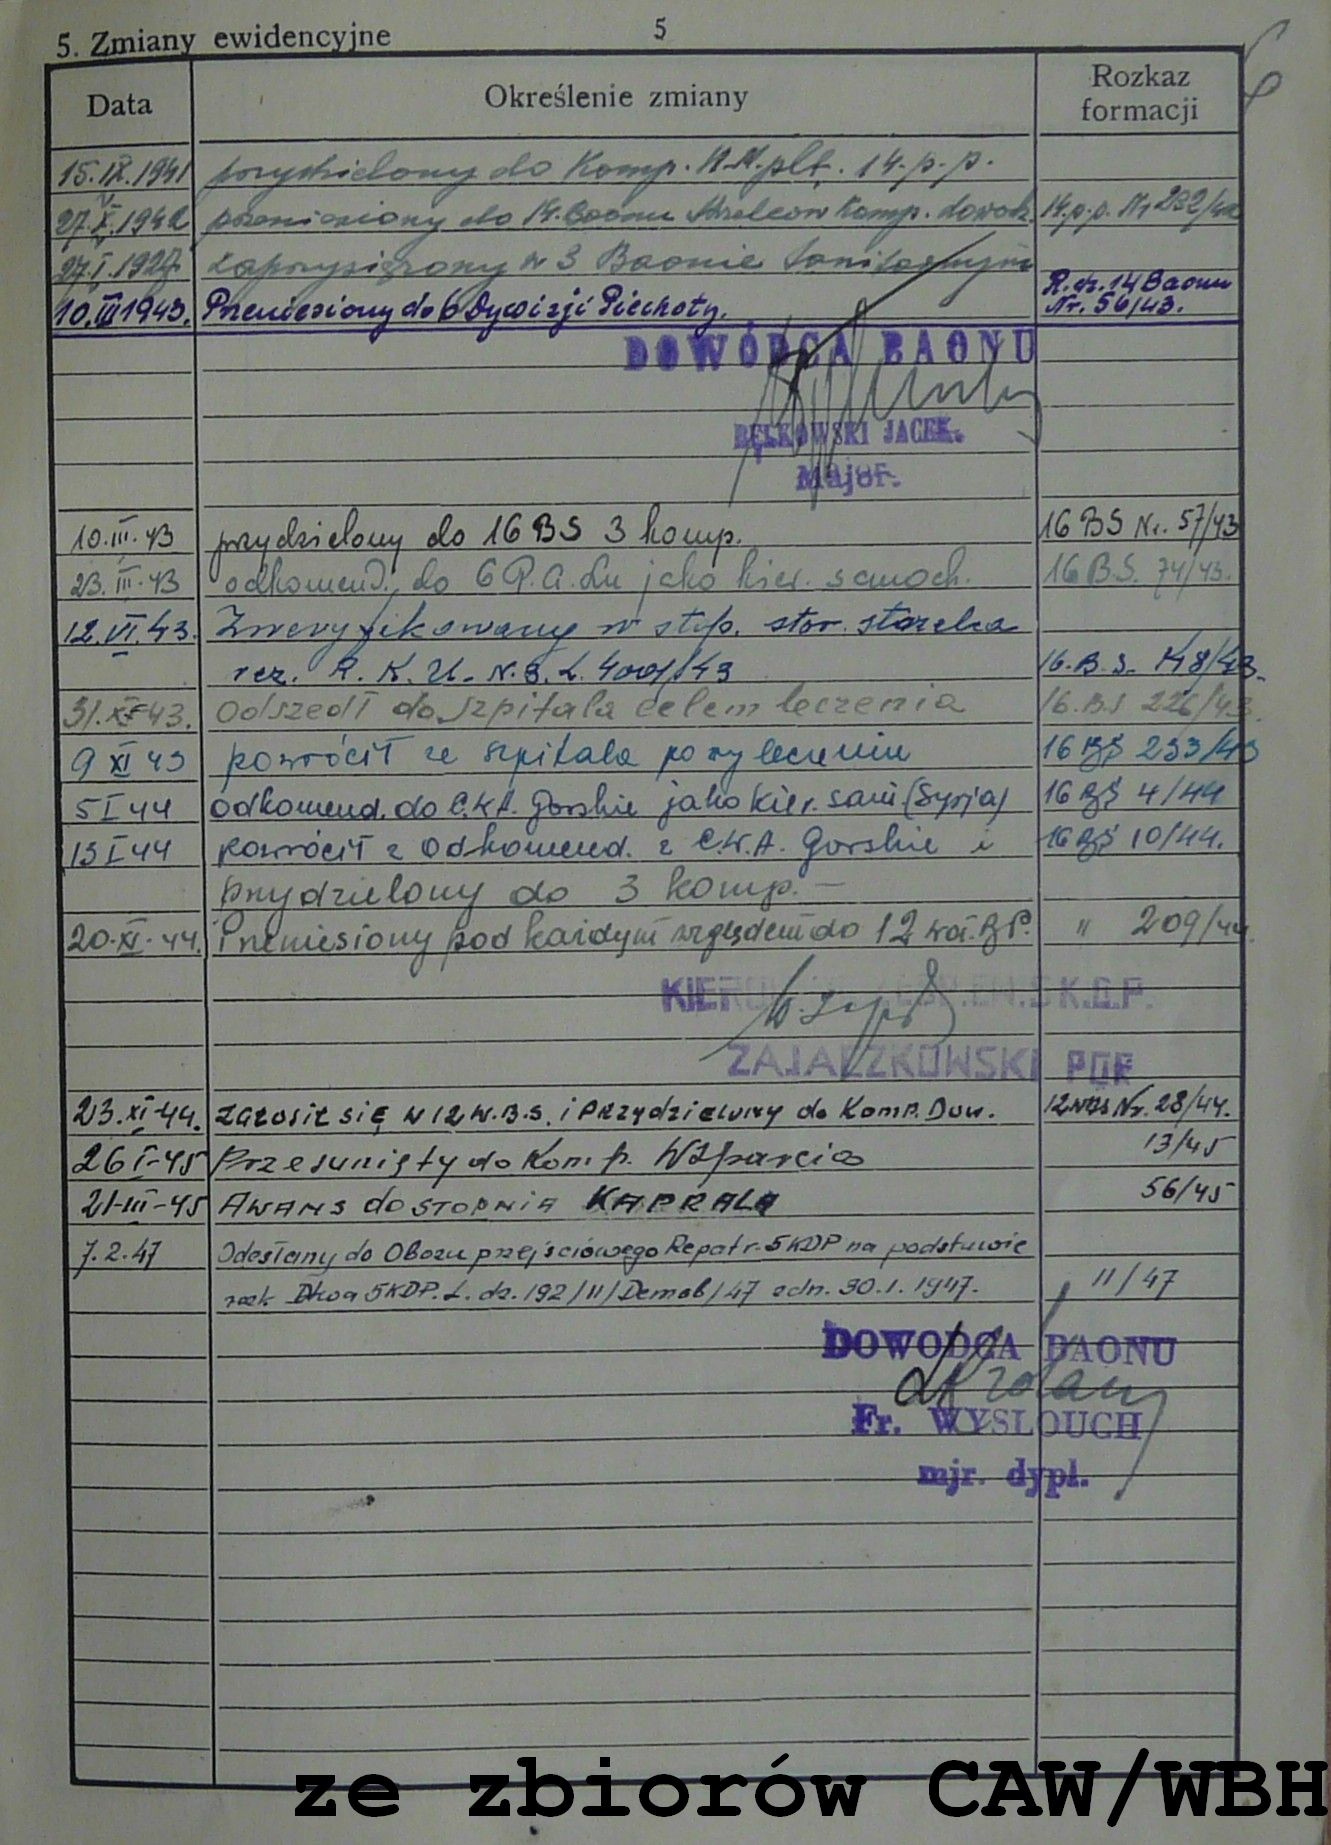 5. Zmiany ewidencyjne 5
Data Określenie zmiany Rozkaz formacji
15.IX.1941 przydzielony do Komp. plt. 14. p.p.
27.X.1942 przeniesiony do 14. Baonu Strzelców Komp. dowodz. 14.p.p. Nr 232/42
27.I.1927. zaprzysiężony w 3 Baonie Sanitarnym
10.III 1943. Przeniesiony do 6 Dywizji Piechoty. R. dz. 14 Baonu Nr. 56/43.
DOWÓDCA BAONU
BĘŁKOWSKI JACEK.
Major.
10.III.43 przydzielony do 16 BS 3 komp. 16 BS Nr. 57/43
23.III.43 odkomend. do 6 P.A.Lu jako kier. samoch. 16 B.S. 74/43.
12.VI.43. Zweryfikowany w stop. star. strzelca
rez. R.K.U. N.S.L. 4001/43 16.B.S. 148/43.
31.X 43. Odszedł do szpitala celem leczenia 16.B.S 226/43.
9 XI 43 powrócił ze szpitala po wyleczeniu 16 BŚ 233/43
5 I 44 odkomend. do C.W.A. Gorskie jako kier. sam (Syrja) 16 BŚ 4/44
13 I 44 powrócił z odkomend. z C.W.A. Gorskie i 16 BŚ 10/44.
przydzielony do 3 komp. —
20.XI.44. Przeniesiony pod każdym względem do 12 wil. BP. " 209/44.
KIER S K.D.P.
ZAJĄCZKOWSKI POR
23.XI-44. zgłosił się w 12 W.B.S. i przydzielony do Komp. Dow. 12 WBS Nr. 28/44.
26 I-45 Przesunięty do Komp. Wsparcia 13/45
21-III-45 AWANS do STOPNIA KAPRALA 56/45
7.2.47 Odesłany do Obozu przejściowego Repatr. 5 KDP na podstawie
rozk Dtwa 5 KDP. L. dz. 192/II/Demob/47 zdn. 30.1.1947. 11/47
DOWODCA BAONU
Fr. WYSŁOUCH
mjr. dypl.
ze zbiorów CAW/WBH